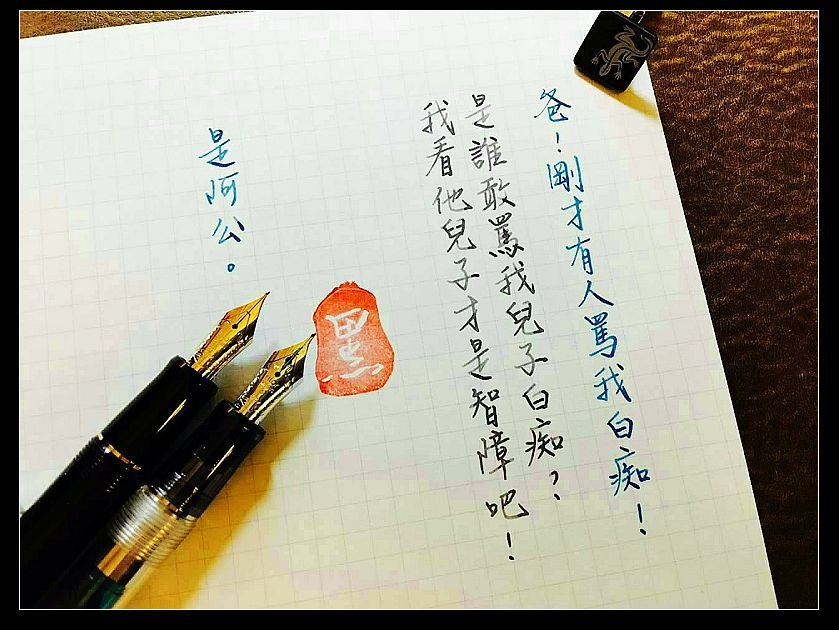 爸！剛才有人罵我白痴！
是誰敢罵我兒子白痴？
我看他兒子才是智障吧！
是阿公。
黑